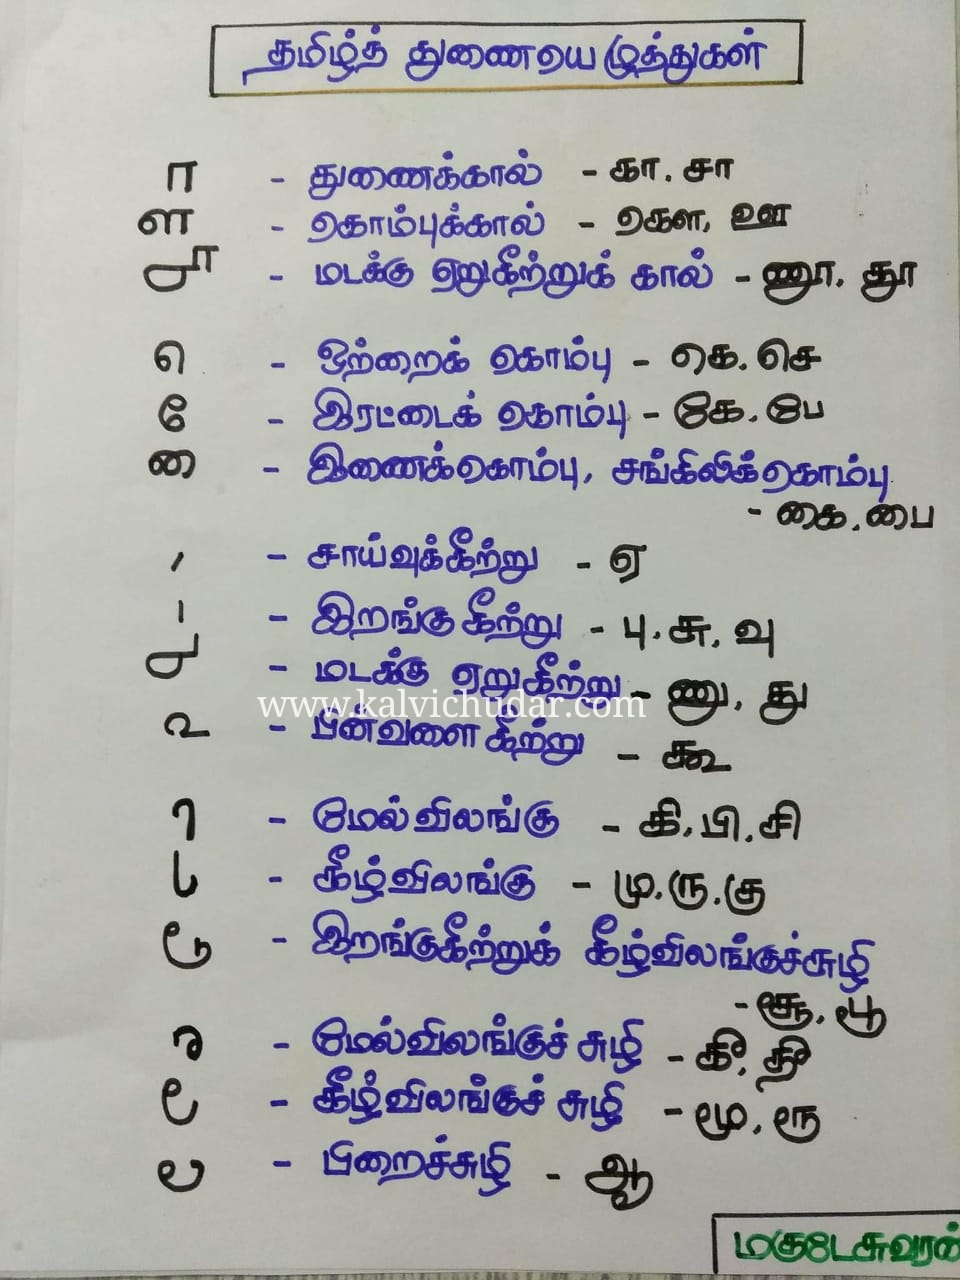 தமிழ்த் துணையெழுத்துகள்
ா - துணைக்கால் - கா. சா
ள - கொம்புக்கால் - கௌ, ஊ
- மடக்கு ஏறுகீற்றுக் கால் - ணூ. தூ
ெ - ஒற்றைக் கொம்பு - கெ. செ
ே - இரட்டைக் கொம்பு - கே. பே
ை - இணைக்கொம்பு, சங்கிலிக்கொம்பு
- கை. பை
- சாய்வுக்கீற்று - ஏ
- இறங்கு கீற்று - பு. சு, வு
- மடக்கு ஏறுகீற்று - ணு, து
www.kalvichudar.com
- பின்வளை கீற்று - கூ
ி - மேல்விலங்கு - கி. பி. சி
- கீழ்விலங்கு - மு. ரு. கு
- இறங்குகீற்றுக் கீழ்விலங்குச்சுழி
- சூ, பூ
ீ - மேல்விலங்குச் சுழி - கீ, தீ
- கீழ்விலங்குச் சுழி - மூ, ரூ
- பிறைச்சுழி - ஆ
மகுடேசுவரன்